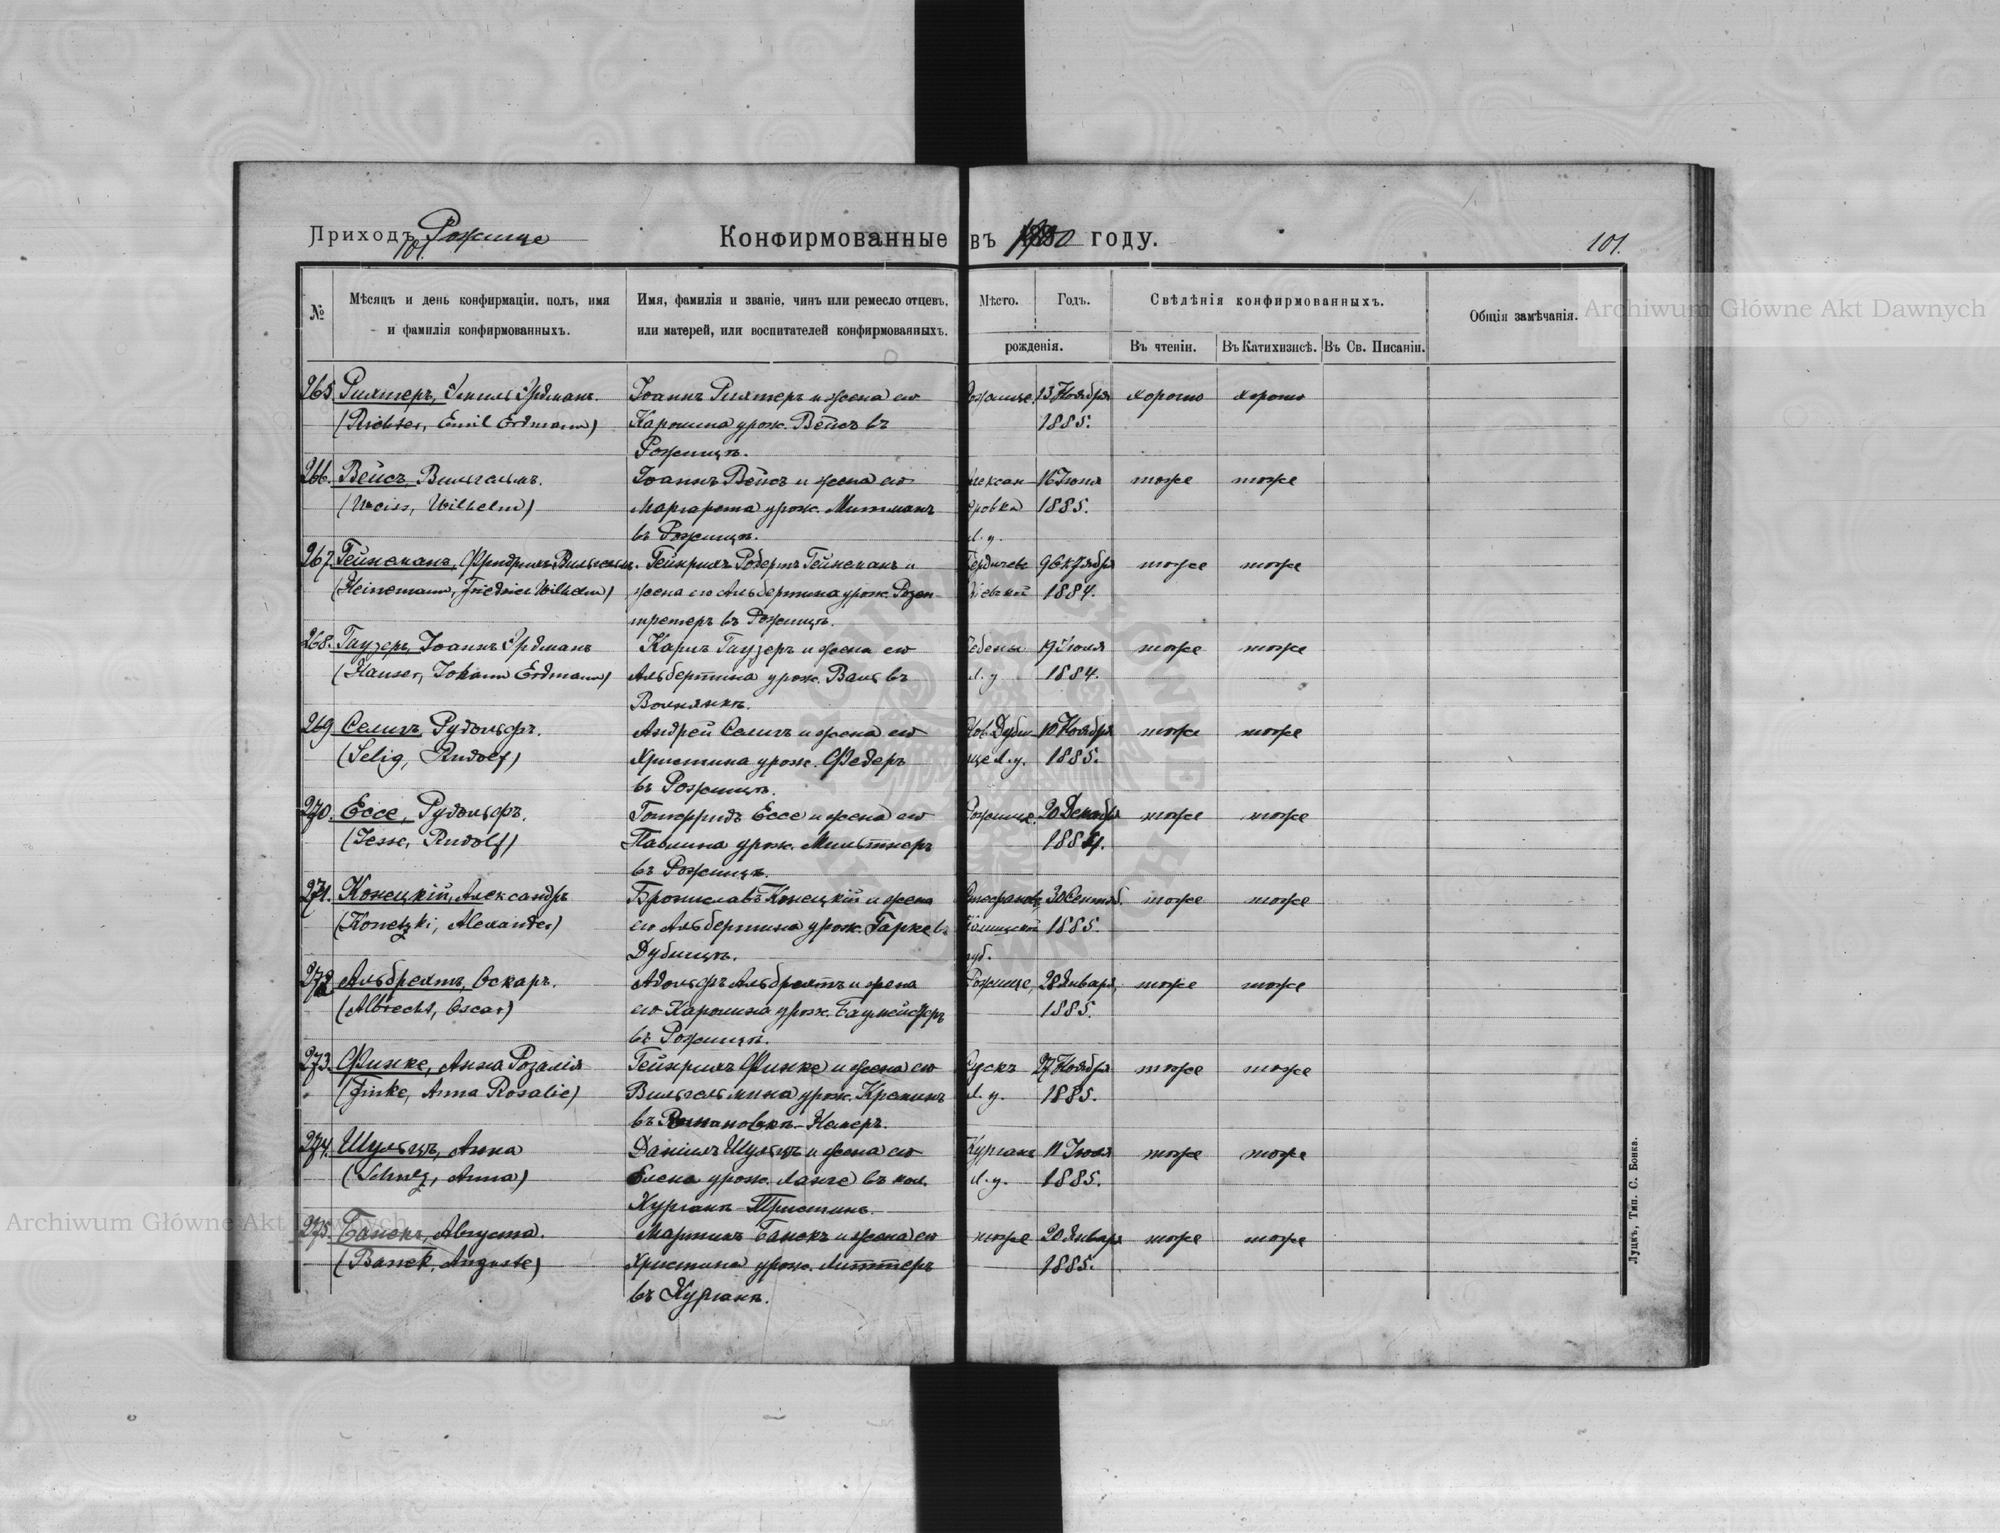 Приходъ Рожище
101.
Конфирмованные въ 1900 году.
101.
№
Мѣсяцъ и день конфирмаціи. полъ, имя
и фамилія конфирмованныхъ.
Имя, фамилія и званіе, чинъ или ремесло отцевъ,
или матерей, или воспитателей конфирмованныхъ.
Мѣсто.
Годъ.
рожденія.
Свѣдѣнія конфирмованныхъ.
Въ чтеніи.
Въ Катихизисѣ.
Въ Св. Писаніи.
Общія замѣчанія.
265. Рихтеръ, Эмиль Эрдманъ. Іоаннъ Рихтеръ и жена его Рожище. 13 Ноября хорошо хорошо
(Richter, Emil Erdmann) Каролина урож. Вейсъ въ 1885.
Рожищѣ.
266. Вейсъ, Вильгельмъ. Іоаннъ Вейсъ и жена его Алексан 16 Іюня тоже тоже
(Weiss, Wilhelm) Маргарета урож. Митманъ дровка 1885.
въ Рожищѣ. Л. у.
267. Гейнеманъ, Фридрихъ Вильгельм. Гейнрихъ Робертъ Гейнеманъ и Бердичевъ тоже тоже
(Heinemann, Friedrich Wilhelm) жена его Альбертина урож. Розен Кіевской 1884.
третеръ въ Рожищѣ.
268. Гаузеръ, Іоаннъ Эрдманъ Карлъ Гаузеръ и жена его 19 Іюля тоже тоже
(Hauser, Johann Erdmann) Альбертина урож. Валь въ Л. у 1884.
Волнянкѣ.
269 Селигъ, Рудольфъ. Андрей Селигъ и жена его Нов. Дуби 10 Ноября тоже тоже
(Selig, Rudolf) Христина урож. Федеръ ще Л. у. 1885.
въ Рожищѣ.
270. Ессе, Рудольфъ. Готфридъ Ессе и жена его Рожище. 20 Декабря тоже тоже
(Jesse, Rudolf) Павлина урож. Мильтнеръ 1884.
въ Рожищѣ.
271. Конецкій, Александръ Брониславъ Конецкій и жена 30 Сентяб. тоже тоже
(Konetzki, Alexander) его Альбертина урож. Гарке въ 1885.
Дубищѣ. губ.
272 Альбрехтъ, Оскаръ. Адольфъ Альбрехтъ и жена Рожище, 28 Января, тоже тоже
(Albrecht, Oscar) его Каролина урож. Баумейстеръ 1885.
въ Рожищѣ.
273. Финке, Анна Розалія Гейнрихъ Финке и жена его 27 Ноября тоже тоже
(Finke, Anna Rosalie) Вильгельмина урож. Крепинъ Л. у. 1885.
въ Романовкѣ-Камер.
274. Шульцъ, Анна Даніилъ Шульцъ и жена его Курганъ 11 Іюля тоже тоже
(Schulz, Anna) Елена урож. Ланге въ кол. Л. у. 1885.
Курганъ-Тристинъ.
275. Банекъ, Августа. Мартинъ Банекъ и жена его тоже 20 Января тоже тоже
(Banek, Auguste) Христина урож. Литтеръ 1885.
въ Курганѣ.
Луцкъ, Тип. С. Бонка.
Archiwum Główne Akt Dawnych
Archiwum Główne Akt Dawnych